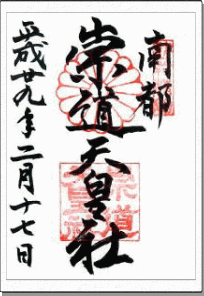 南都
崇道天皇社
平成廿九年二月十七日